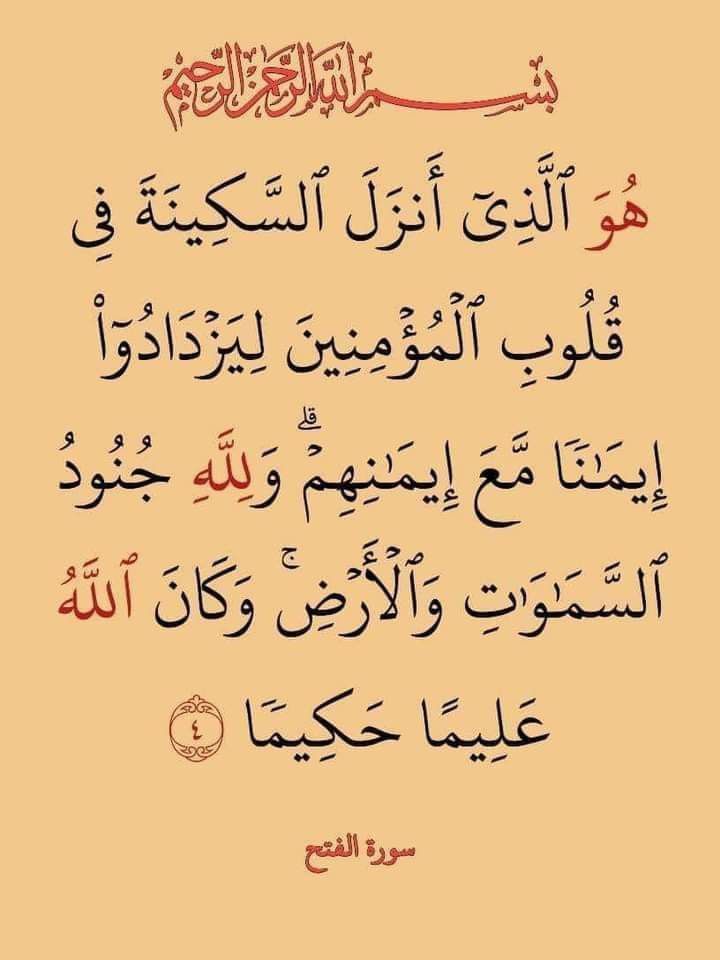 بِسْمِ اللَّهِ الرَّحْمَٰنِ الرَّحِيمِ
هُوَ ٱلَّذِىٓ أَنزَلَ ٱلسَّكِينَةَ فِى
قُلُوبِ ٱلْمُؤْمِنِينَ لِيَزْدَادُوٓا۟
إِيمَـٰنًا مَّعَ إِيمَـٰنِهِمْ ۗ وَلِلَّهِ جُنُودُ
ٱلسَّمَـٰوَٰتِ وَٱلْأَرْضِ ۚ وَكَانَ ٱللَّهُ
عَلِيمًا حَكِيمًا ٤
سورة الفتح